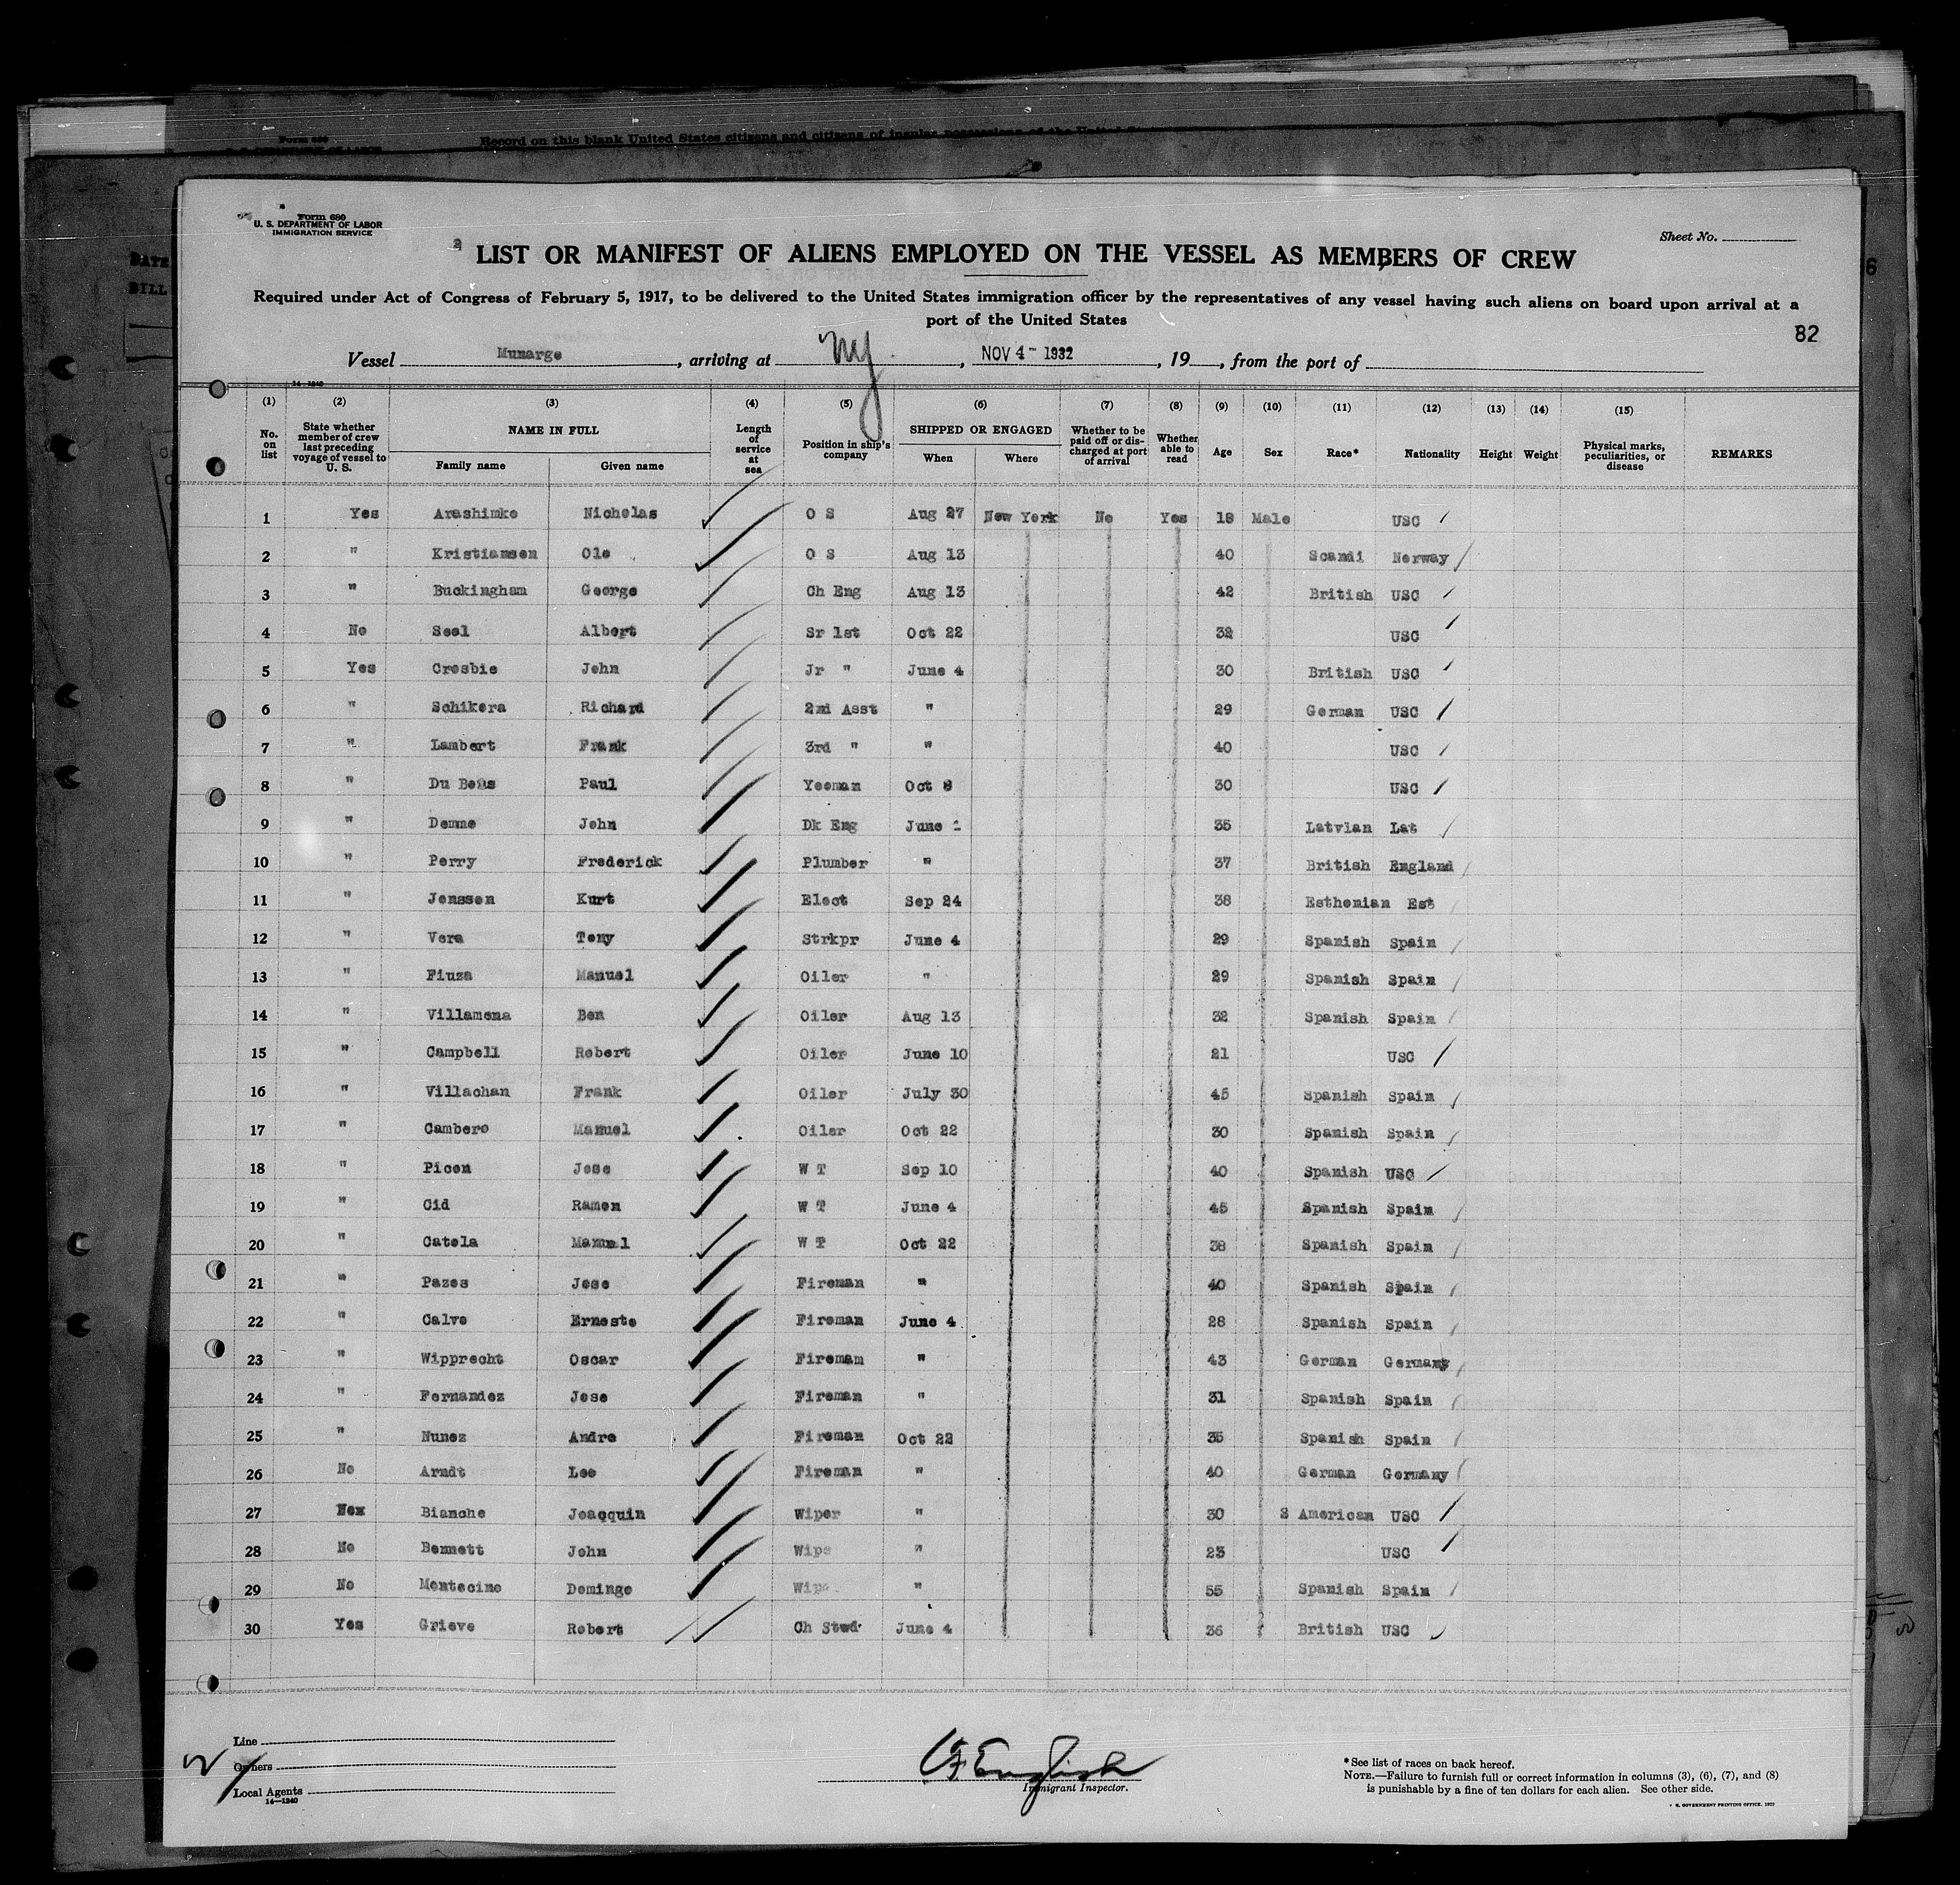 Form 680
Record on this blank United States citizens and citizens of insular possessions of the United
DATE
BILL
Form 680
U. S. DEPARTMENT OF LABOR
IMMIGRATION SERVICE
Sheet No.
LIST OR MANIFEST OF ALIENS EMPLOYED ON THE VESSEL AS MEMBERS OF CREW
Required under Act of Congress of February 5, 1917, to be delivered to the United States immigration officer by the representatives of any vessel having such aliens on board upon arrival at a
port of the United States
82
Vessel Munargo, arriving at NY, NOV 4 - 1932, 19, from the port of
14-1240
(1) (2) (3) (4) (5) (6) (7) (8) (9) (10) (11) (12) (13) (14) (15)
No. on list State whether member of crew last preceding voyage of vessel to U. S. NAME IN FULL Family name Given name Length of service at sea Position in ship's company SHIPPED OR ENGAGED When Where Whether to be paid off or discharged at port of arrival Whether able to read Age Sex Race* Nationality Height Weight Physical marks, peculiarities, or disease REMARKS
1 Yes Arashimko Nicholas O S Aug 27 New York No Yes 18 Male USC
2 " Kristiansen Ole O S Aug 13 40 Scandi Norway
3 " Buckingham George Ch Eng Aug 13 42 British USC
4 No Seel Albert Sr 1st Oct 22 32 USC
5 Yes Crosbie John Jr " June 4 30 British USC
6 " Schikora Richard 2nd Asst " 29 German USC
7 " Lambert Frank 3rd " " 40 USC
8 " Du Bois Paul Yeoman Oct 8 30 USC
9 " Demme John Dk Eng June 35 Latvian Lat
10 " Perry Frederick Plumber " 37 British England
11 " Jenssen Kurt Elect Sep 24 38 Esthonian Est
12 " Vera Tony Strkpr June 4 29 Spanish Spain
13 " Fiuza Manuel Oiler " 29 Spanish Spain
14 " Villamena Ben Oiler Aug 13 32 Spanish Spain
15 " Campbell Robert Oiler June 10 21 USC
16 " Villachan Frank Oiler July 30 45 Spanish Spain
17 " Cambero Manuel Oiler Oct 22 30 Spanish Spain
18 " Picon Jose W T Sep 10 40 Spanish USC
19 " Cid Ramon W T June 4 45 Spanish Spain
20 " Catela Manuel W T Oct 22 38 Spanish Spain
21 " Pazos Jose Fireman " 40 Spanish Spain
22 " Calvo Ernesto Fireman June 4 28 Spanish Spain
23 " Wipprecht Oscar Fireman " 43 German Germany
24 " Fernandez Jose Fireman " 31 Spanish Spain
25 " Nunez Andre Fireman Oct 22 35 Spanish Spain
26 No Arndt Leo Fireman " 40 German Germany
27 Nox Bianche Joacquin Wiper " 30 S American USC
28 No Bennett John Wipe " 23 USC
29 No Montecino Domingo Wipe " 55 Spanish Spain
30 Yes Grieve Robert Ch Stwd June 4 36 British USC
Line
Owners
Local Agents
14-1240
CF English
Immigrant Inspector.
*See list of races on back hereof.
NOTE.—Failure to furnish full or correct information in columns (3), (6), (7), and (8)
is punishable by a fine of ten dollars for each alien. See other side.
U. S. GOVERNMENT PRINTING OFFICE